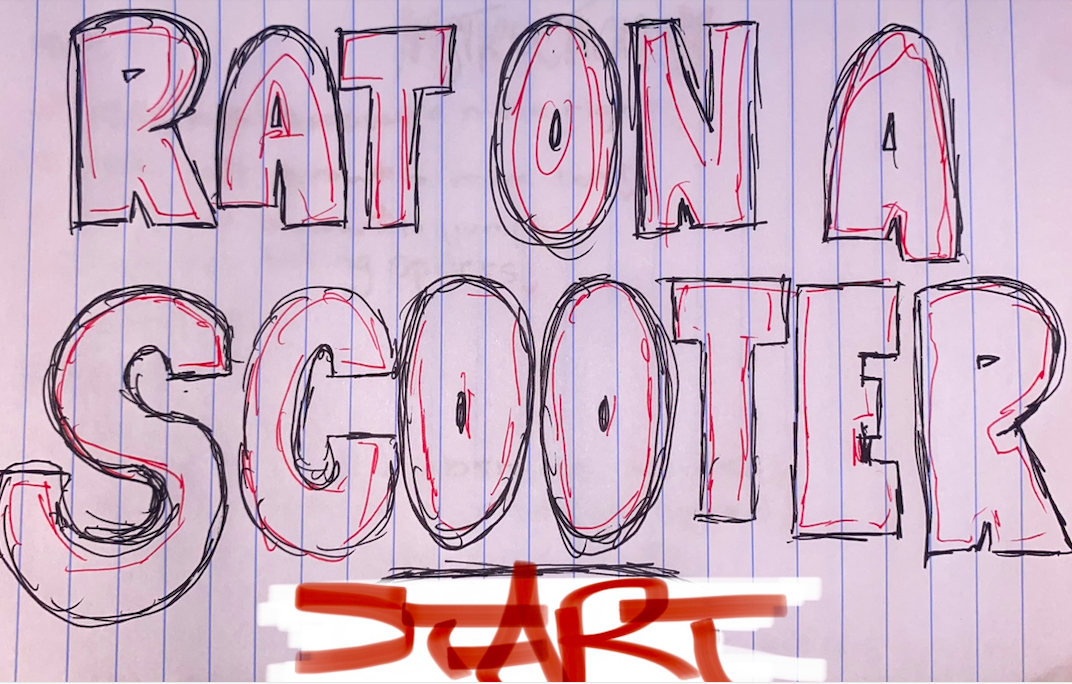 RAT ON A
SCOOTER
START